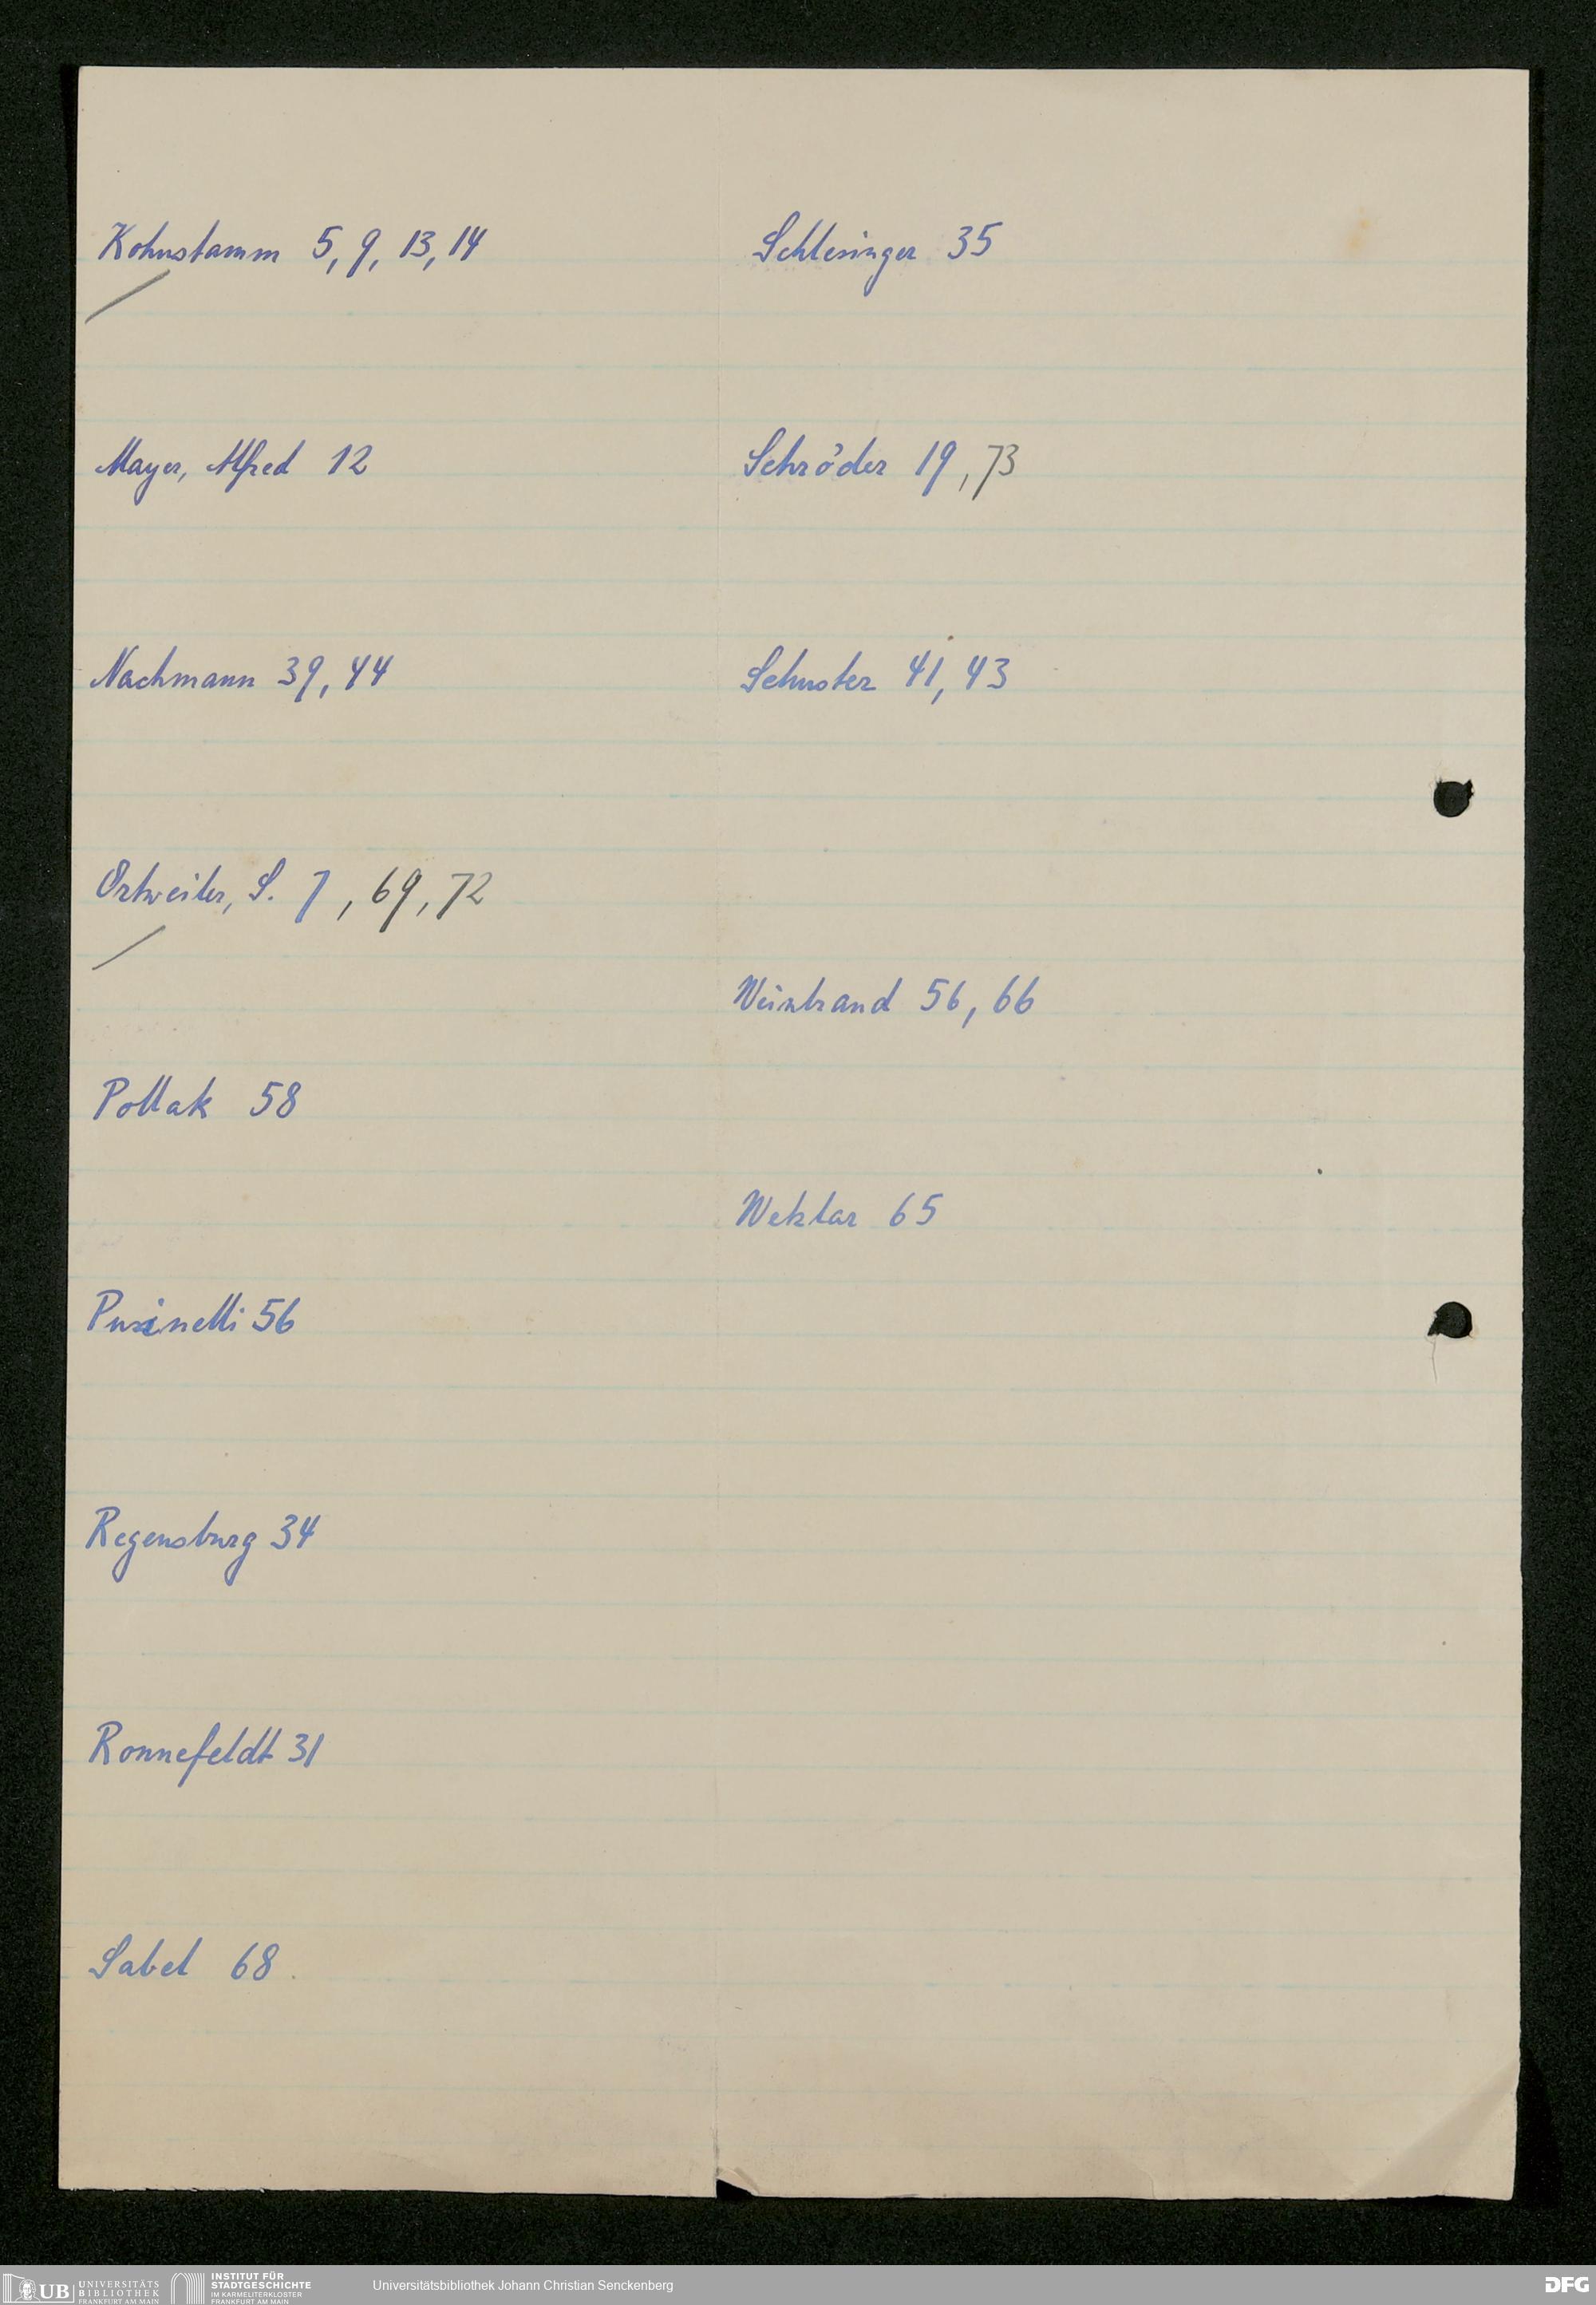 Kohnstamm 5, 9, 13, 14
Mayer, Alfred 12
Nachmann 39, 44
Ortweiler, S. 7, 69, 72
Pollak 58
Pusinelli 56
Regensburg 34
Ronnefeldt 31
Sabel 68
Schlesinger 35
Schröder 19, 73
Schuster 41, 43
Weintraud 56, 66
Wetzlar 65
UB UNIVERSITÄTS
BIBLIOTHEK
FRANKFURT AM MAIN
INSTITUT FÜR
STADTGESCHICHTE
IM KARMELITERKLOSTER
FRANKFURT AM MAIN
Universitätsbibliothek Johann Christian Senckenberg
DFG